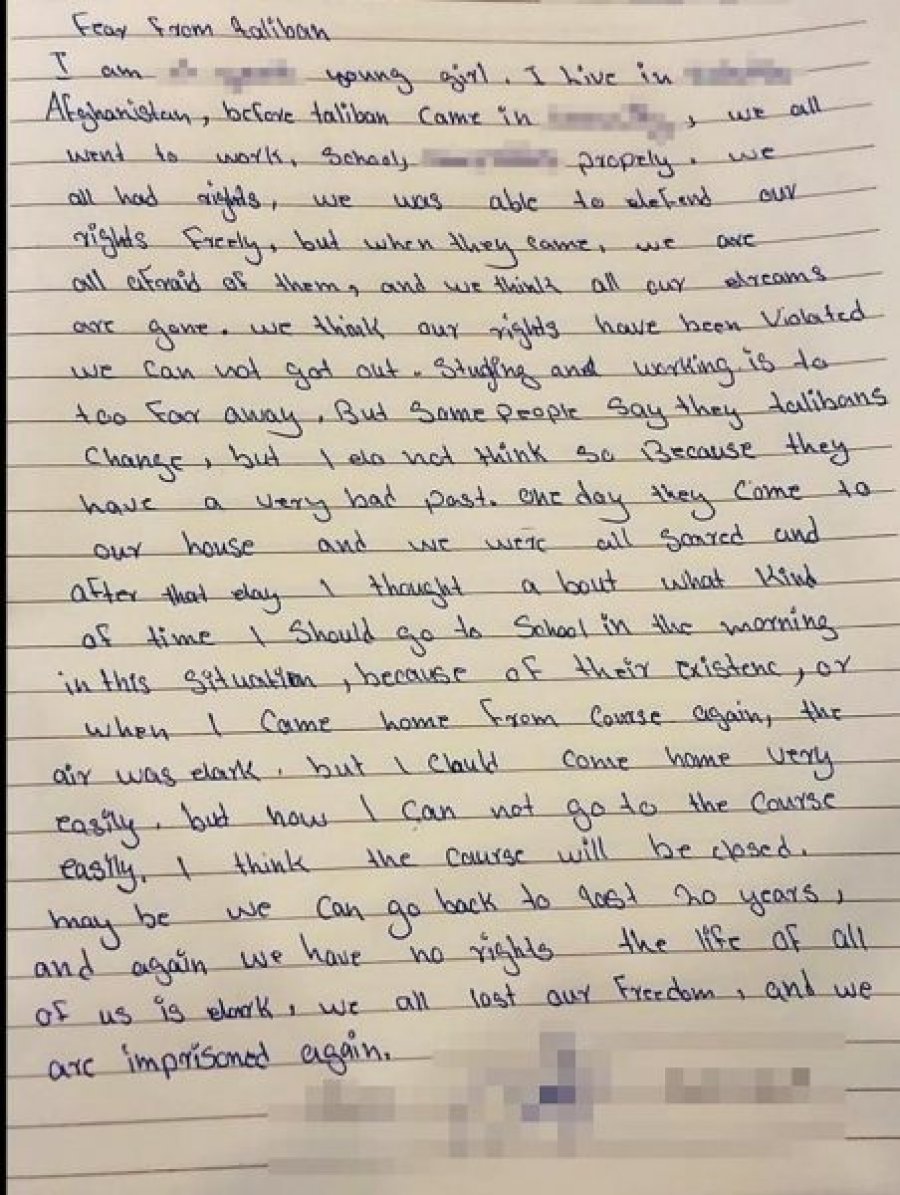 Fear from taliban
I am young girl. I live in
Afghanistan, before taliban came in , we all
went to work, School, propely. we
all had rights, we was able to defend our
rights freely, but when they came, we are
all afraid of them, and we think all our dreams
are gone. we think our rights have been Violated
we can not got out. Studing and working is to
too far away. But some people say they talibans
change, but I do not think so Because they
have a very bad past. one day they come to
our house and we were all scared and
after that day I thought a bout what kind
of time I should go to School in the morning
in this situation, because of their existenc, or
when I came home from course again, the
air was dark. but I clould come home very
easily. but now I can not go to the course
easily. I think the course will be closed.
may be we can go back to last 20 years,
and again we have no rights the life of all
of us is dark, we all lost our freedom, and we
are imprisoned again.